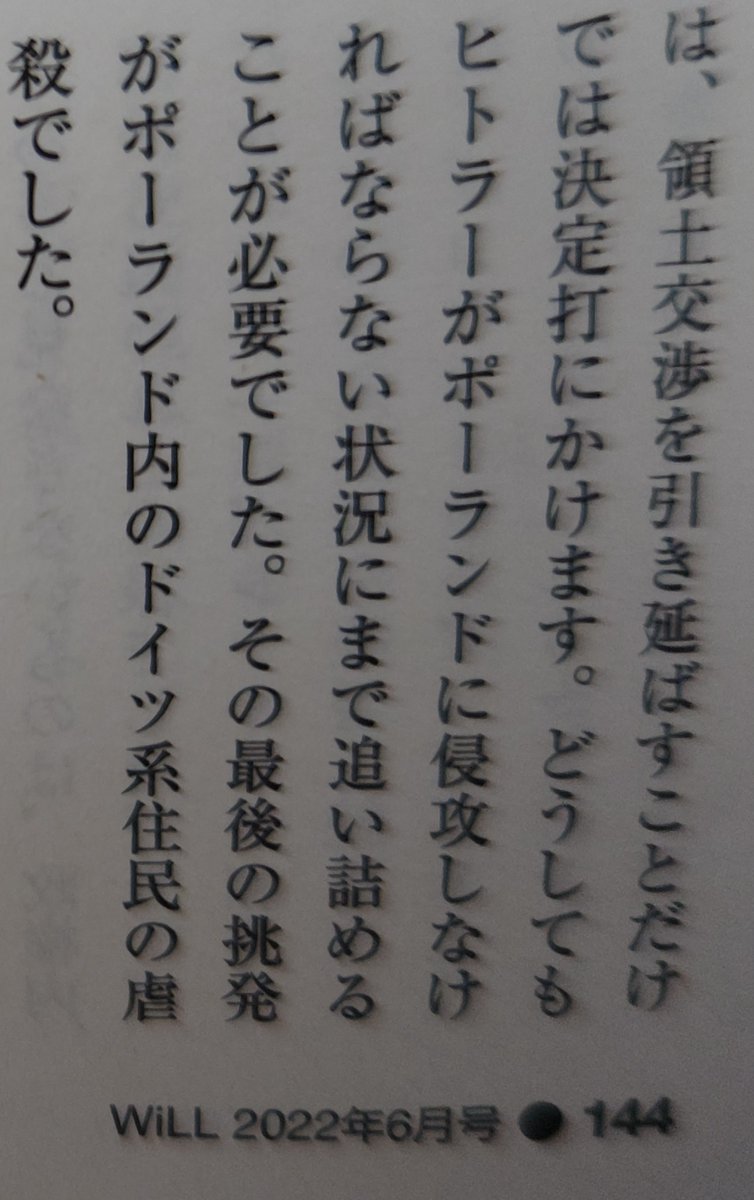 は、領土交渉を引き延ばすことだけ
では決定打にかけます。どうしても
ヒトラーがポーランドに侵攻しなけ
ればならない状況にまで追い詰める
ことが必要でした。その最後の挑発
がポーランド内のドイツ系住民の虐
殺でした。
WiLL 2022年6月号 ● 144